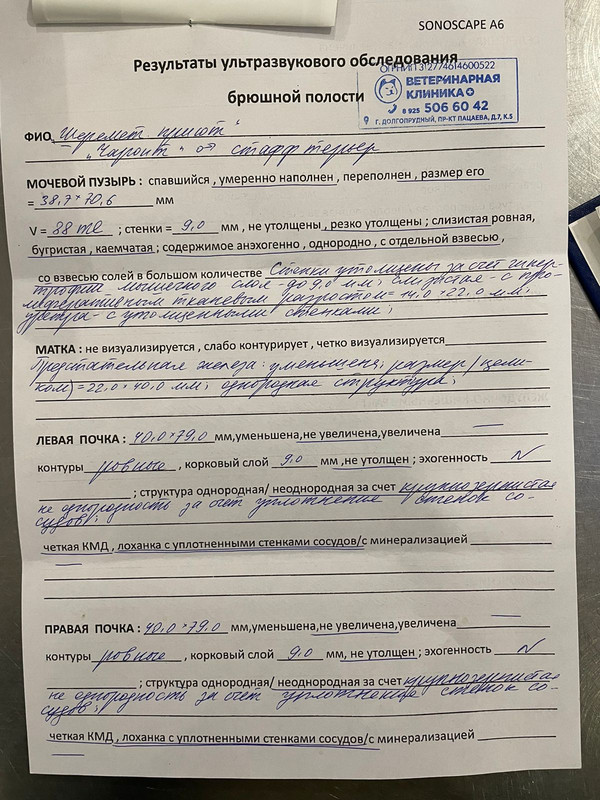 SONOSCAPE A6
Результаты ультразвукового обследования
брюшной полости
ОГРНИП 312774614600522
ВЕТЕРИНАРНАЯ
КЛИНИКА
8 925 506 60 42
Г. ДОЛГОПРУДНЫЙ, ПР-КТ ПАЦАЕВА, Д.7, К.5
ФИО „Шеремет приют"
„Чароит" стафф терьер
МОЧЕВОЙ ПУЗЫРЬ : спавшийся , умеренно наполнен , переполнен , размер его
= 38,7 × 70,6 мм
V = 88 ml ; стенки = 9,0 мм , не утолщены , резко утолщены ; слизистая ровная,
бугристая , каемчатая ; содержимое анэхогенно , однородно , с отдельной взвесью ,
со взвесью солей в большом количестве Стенки утолщены за счет гипер-
трофии мышечного слоя - до 9,0 мм; слизистая - с про-
лиферативным тканевым разростом = 14,0 × 22,0 мм;
уретра - с утолщенными стенками;
МАТКА : не визуализируется , слабо контурирует , четко визуализируется
Предстательная железа: уменьшена; размер (цели-
ком) = 22,0 × 40,0 мм; однородная структура;
ЛЕВАЯ ПОЧКА : 40,0 × 79,0 мм,уменьшена,не увеличена,увеличена —
контуры ровные , корковый слой 9,0 мм ,не утолщен ; эхогенность N
; структура однородная/ неоднородная за счет крупнозернистая
не однородность за счет уплотнение стенок со-
судов;
четкая КМД , лоханка с уплотненными стенками сосудов/с минерализацией
—
ПРАВАЯ ПОЧКА : 40,0 × 79,0 мм,уменьшена,не увеличена,увеличена —
контуры ровные , корковый слой 9,0 мм, не утолщен ; эхогенность N
; структура однородная/ неоднородная за счет крупнозернистая
не однородность за счет уплотнения стенок со-
судов;
четкая КМД , лоханка с уплотненными стенками сосудов/с минерализацией
—